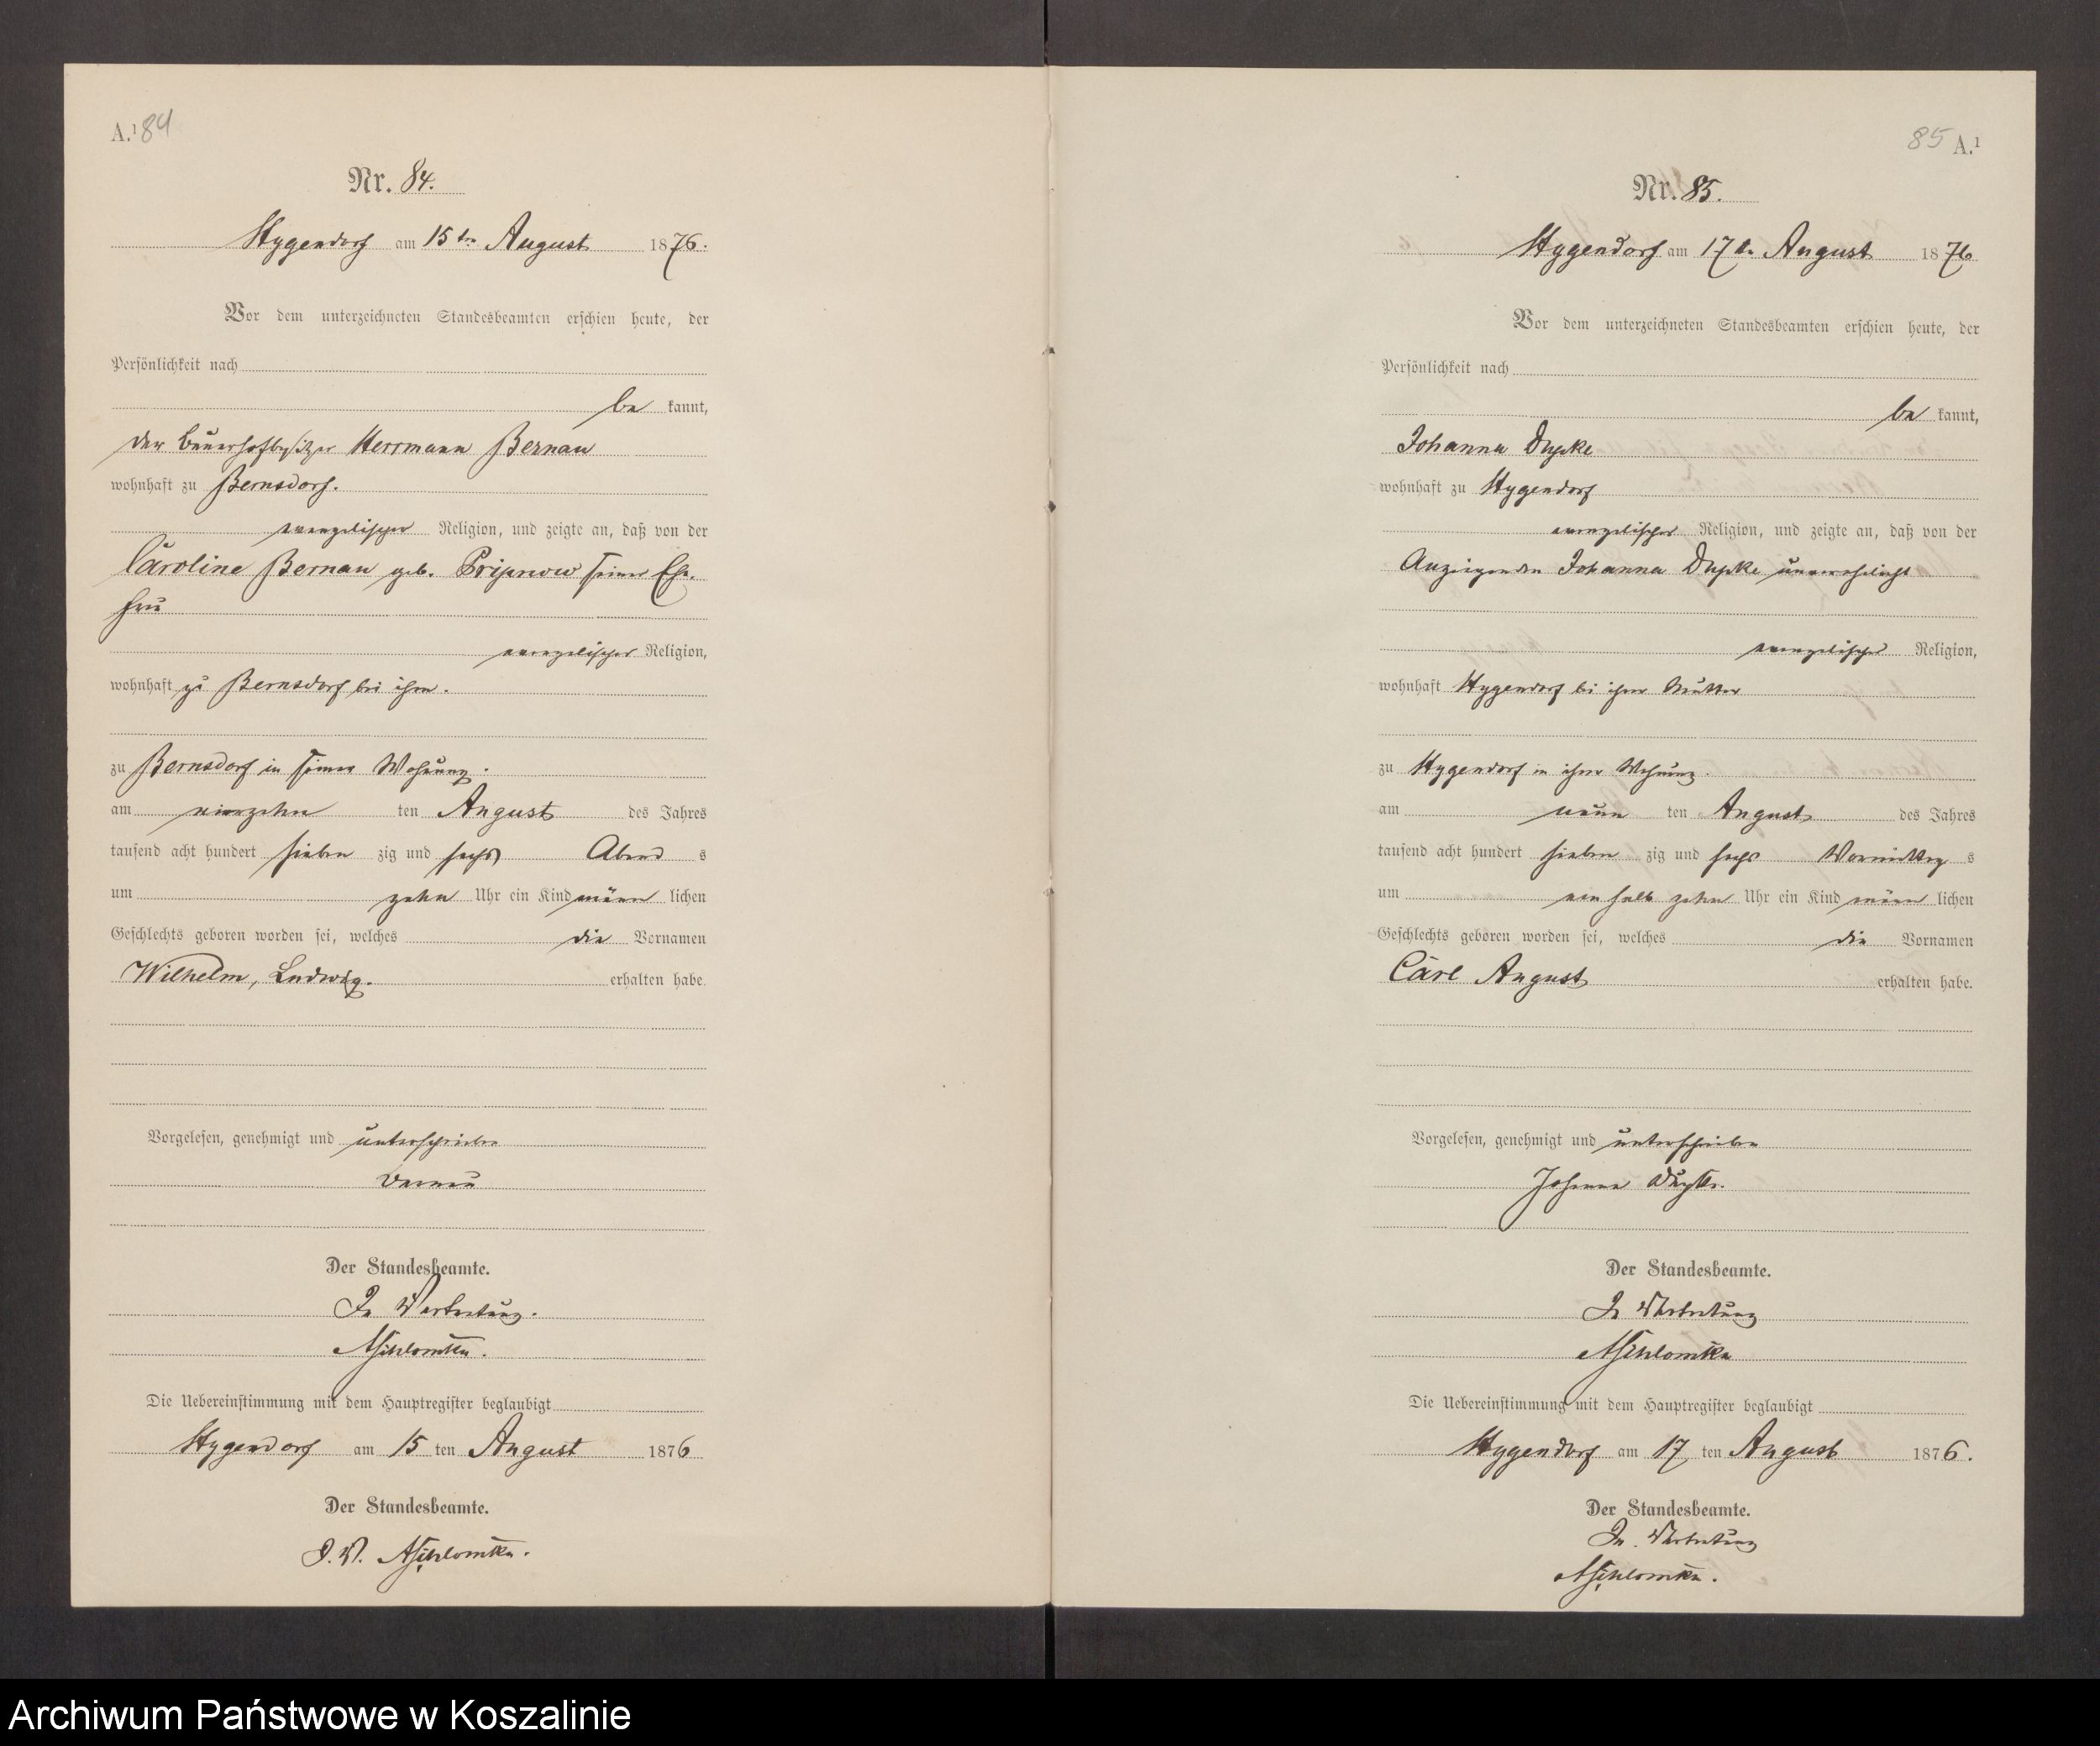 A.¹ 84
Nr. 84.
Hygendorf am 15ten August 1876.
Vor dem unterzeichneten Standesbeamten erschien heute, der
Persönlichkeit nach
be kannt,
der Bauerhofbesitzer Herrmann Bernau
wohnhaft zu Bernsdorf.
evangelischer Religion, und zeigte an, daß von der
Caroline Bernau geb. Pripnow seiner Ehe-
frau
evangelischer Religion,
wohnhaft zu Bernsdorf bei ihm.
zu Bernsdorf in seiner Wohnung.
am vierzehn ten August des Jahres
tausend acht hundert sieben zig und sechs Abend s
um zehn Uhr ein Kind männ lichen
Geschlechts geboren worden sei, welches die Vornamen
Wilhelm, Ludwig. erhalten habe.
Vorgelesen, genehmigt und unterschrieben
Bernau
Der Standesbeamte.
In Vertretung.
Die Uebereinstimmung mit dem Hauptregister beglaubigt
Hygendorf am 15 ten August 1876
Der Standesbeamte.
I. V.
85 A.¹
Nr. 85.
Hygendorf am 17ten August 1876
Vor dem unterzeichneten Standesbeamten erschien heute, der
Persönlichkeit nach
be kannt,
Johanna
wohnhaft zu Hygendorf
evangelischer Religion, und zeigte an, daß von der
Anzeigenden Johanna unverehelicht
evangelischer Religion,
wohnhaft Hygendorf bei ihrer Mutter
zu Hygendorf in ihrer Wohnung.
am neun ten August des Jahres
tausend acht hundert sieben zig und sechs Vormittag s
um halb zehn Uhr ein Kind männ lichen
Geschlechts geboren worden sei, welches die Vornamen
Carl August erhalten habe.
Vorgelesen, genehmigt und unterschrieben
Johanna
Der Standesbeamte.
In Vertretung
Die Uebereinstimmung mit dem Hauptregister beglaubigt
Hygendorf am 17 ten August 1876.
Der Standesbeamte.
In Vertretung
Archiwum Państwowe w Koszalinie